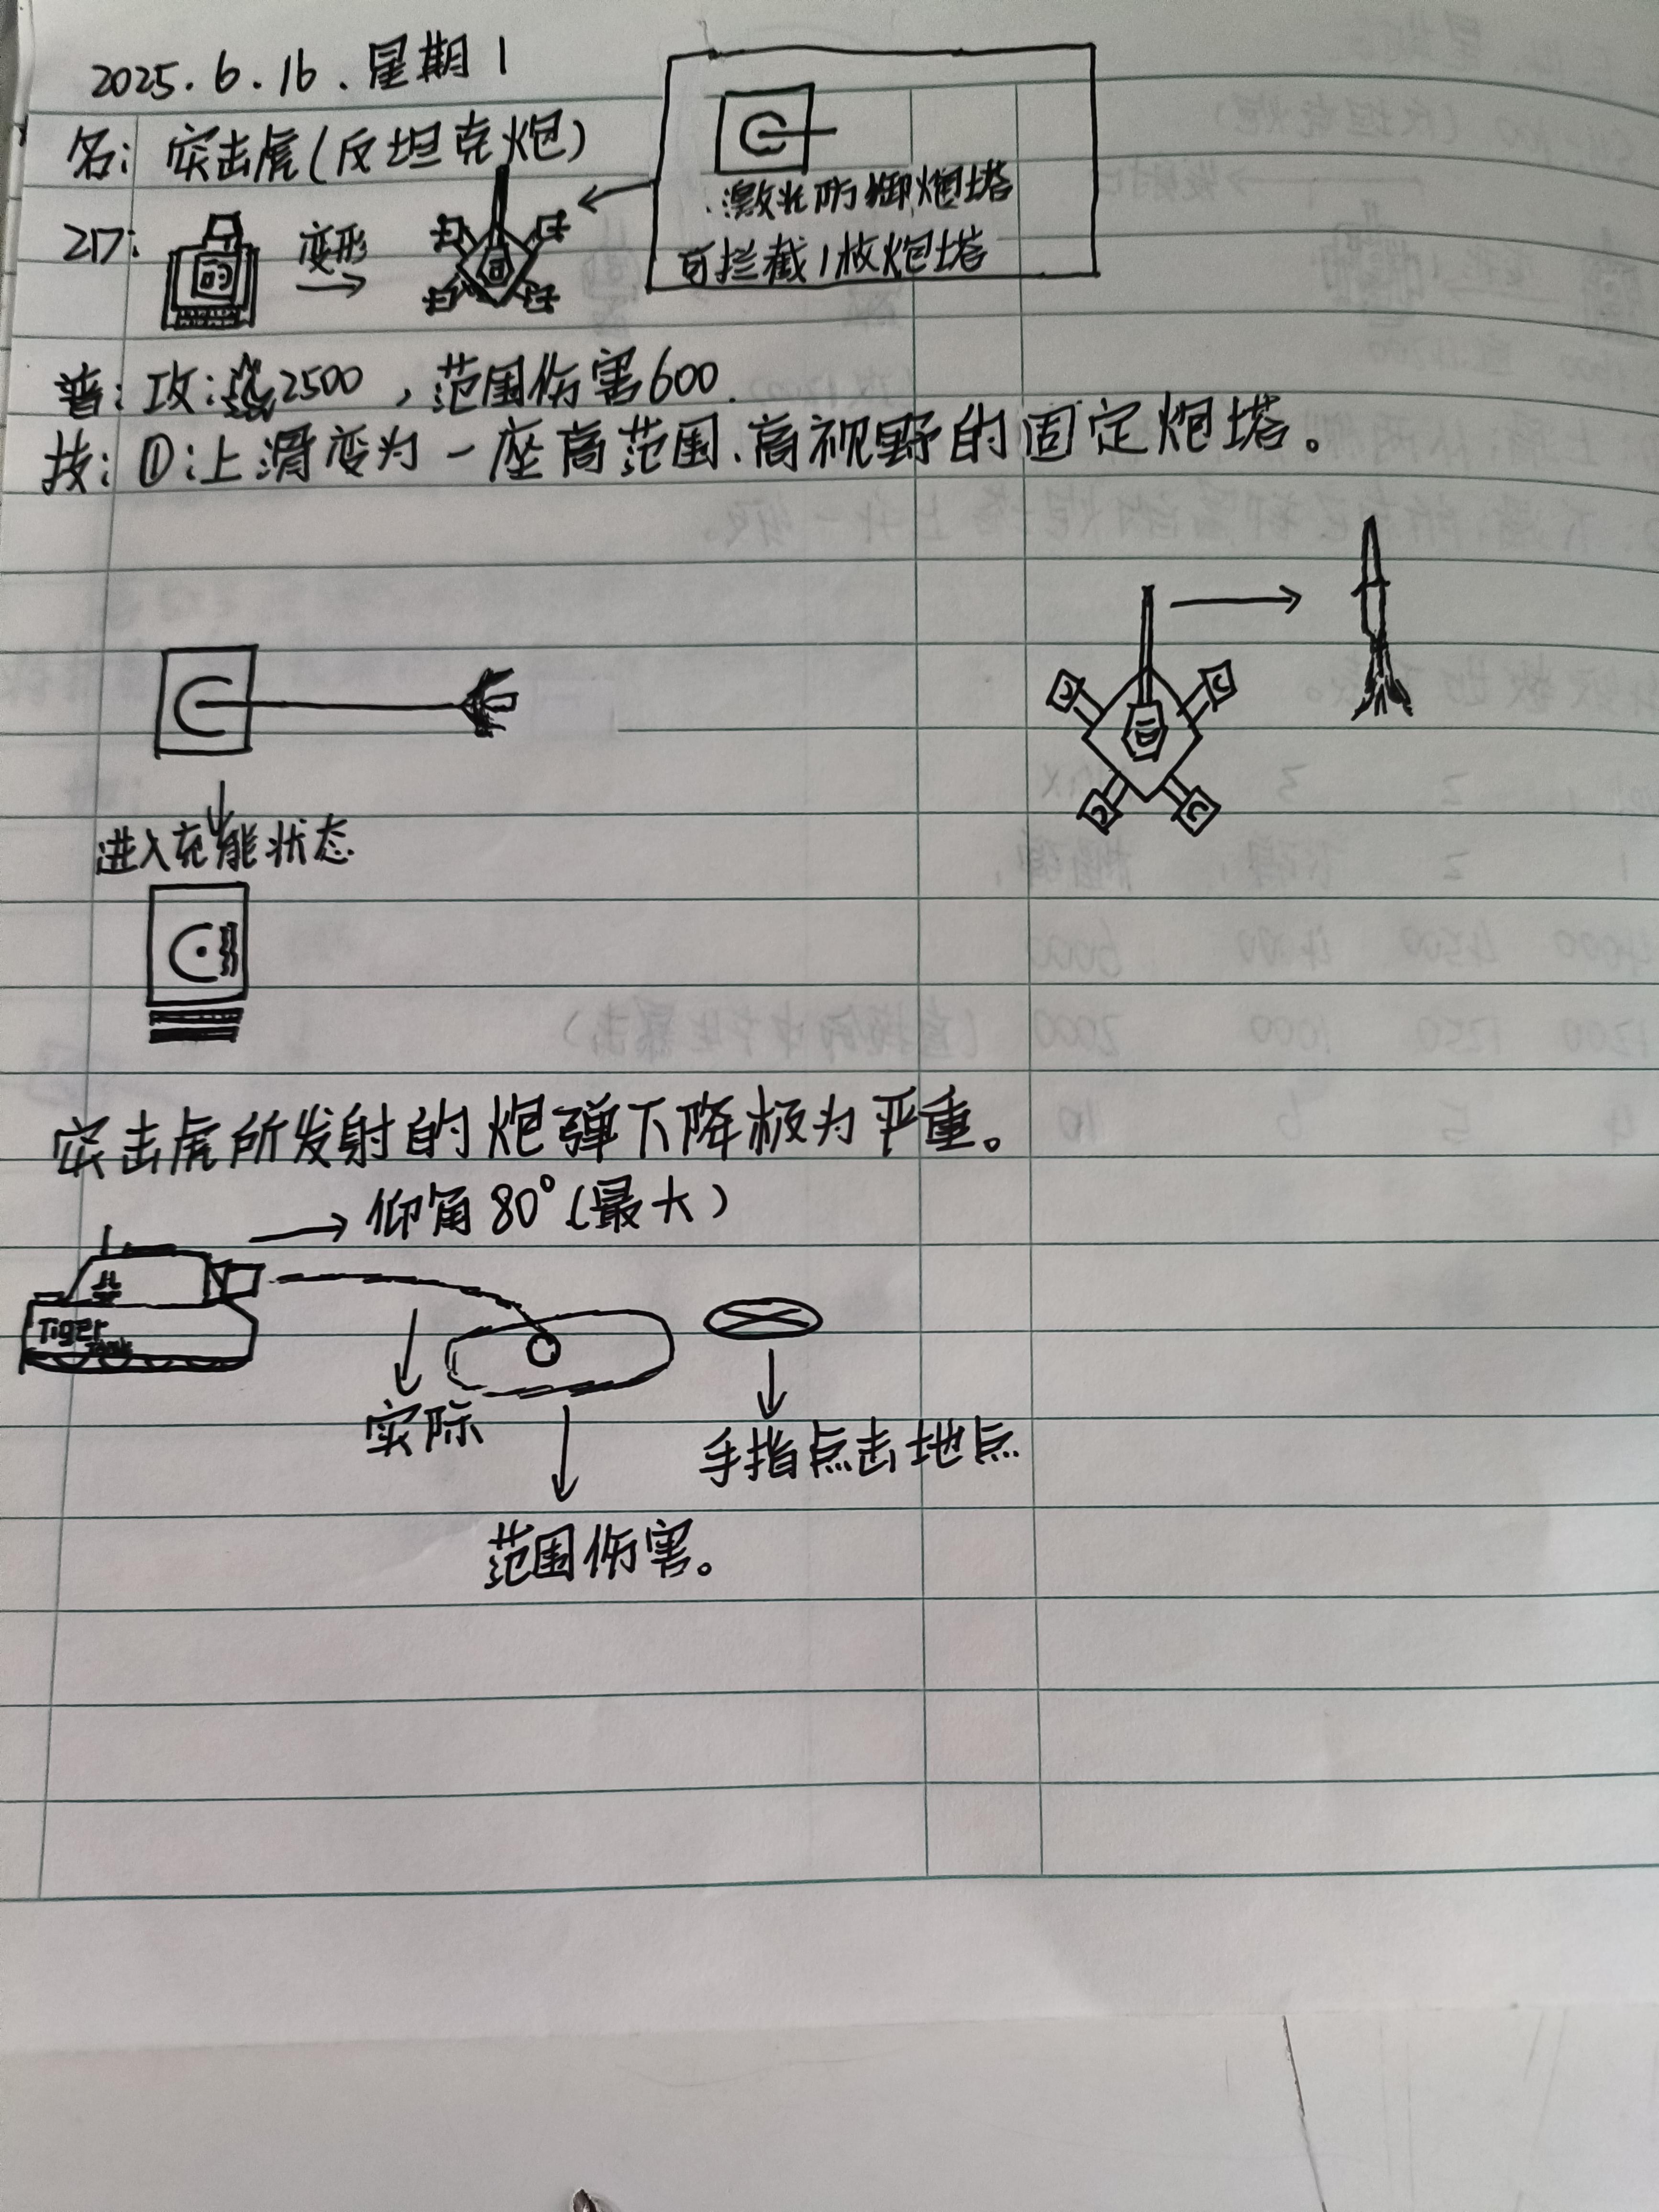 2025.6.16.星期1
名: 突击虎(反坦克炮)
激光防御炮塔
可拦截1枚炮塔
2D:
变形
普: 攻: 2500,范围伤害600.
技: ①:上滑变为一座高范围、高视野的固定炮塔。
进入充能状态
突击虎所发射的炮弹下降极为严重。
仰角80°(最大)
Tiger
实际
手指点击地点
范围伤害。